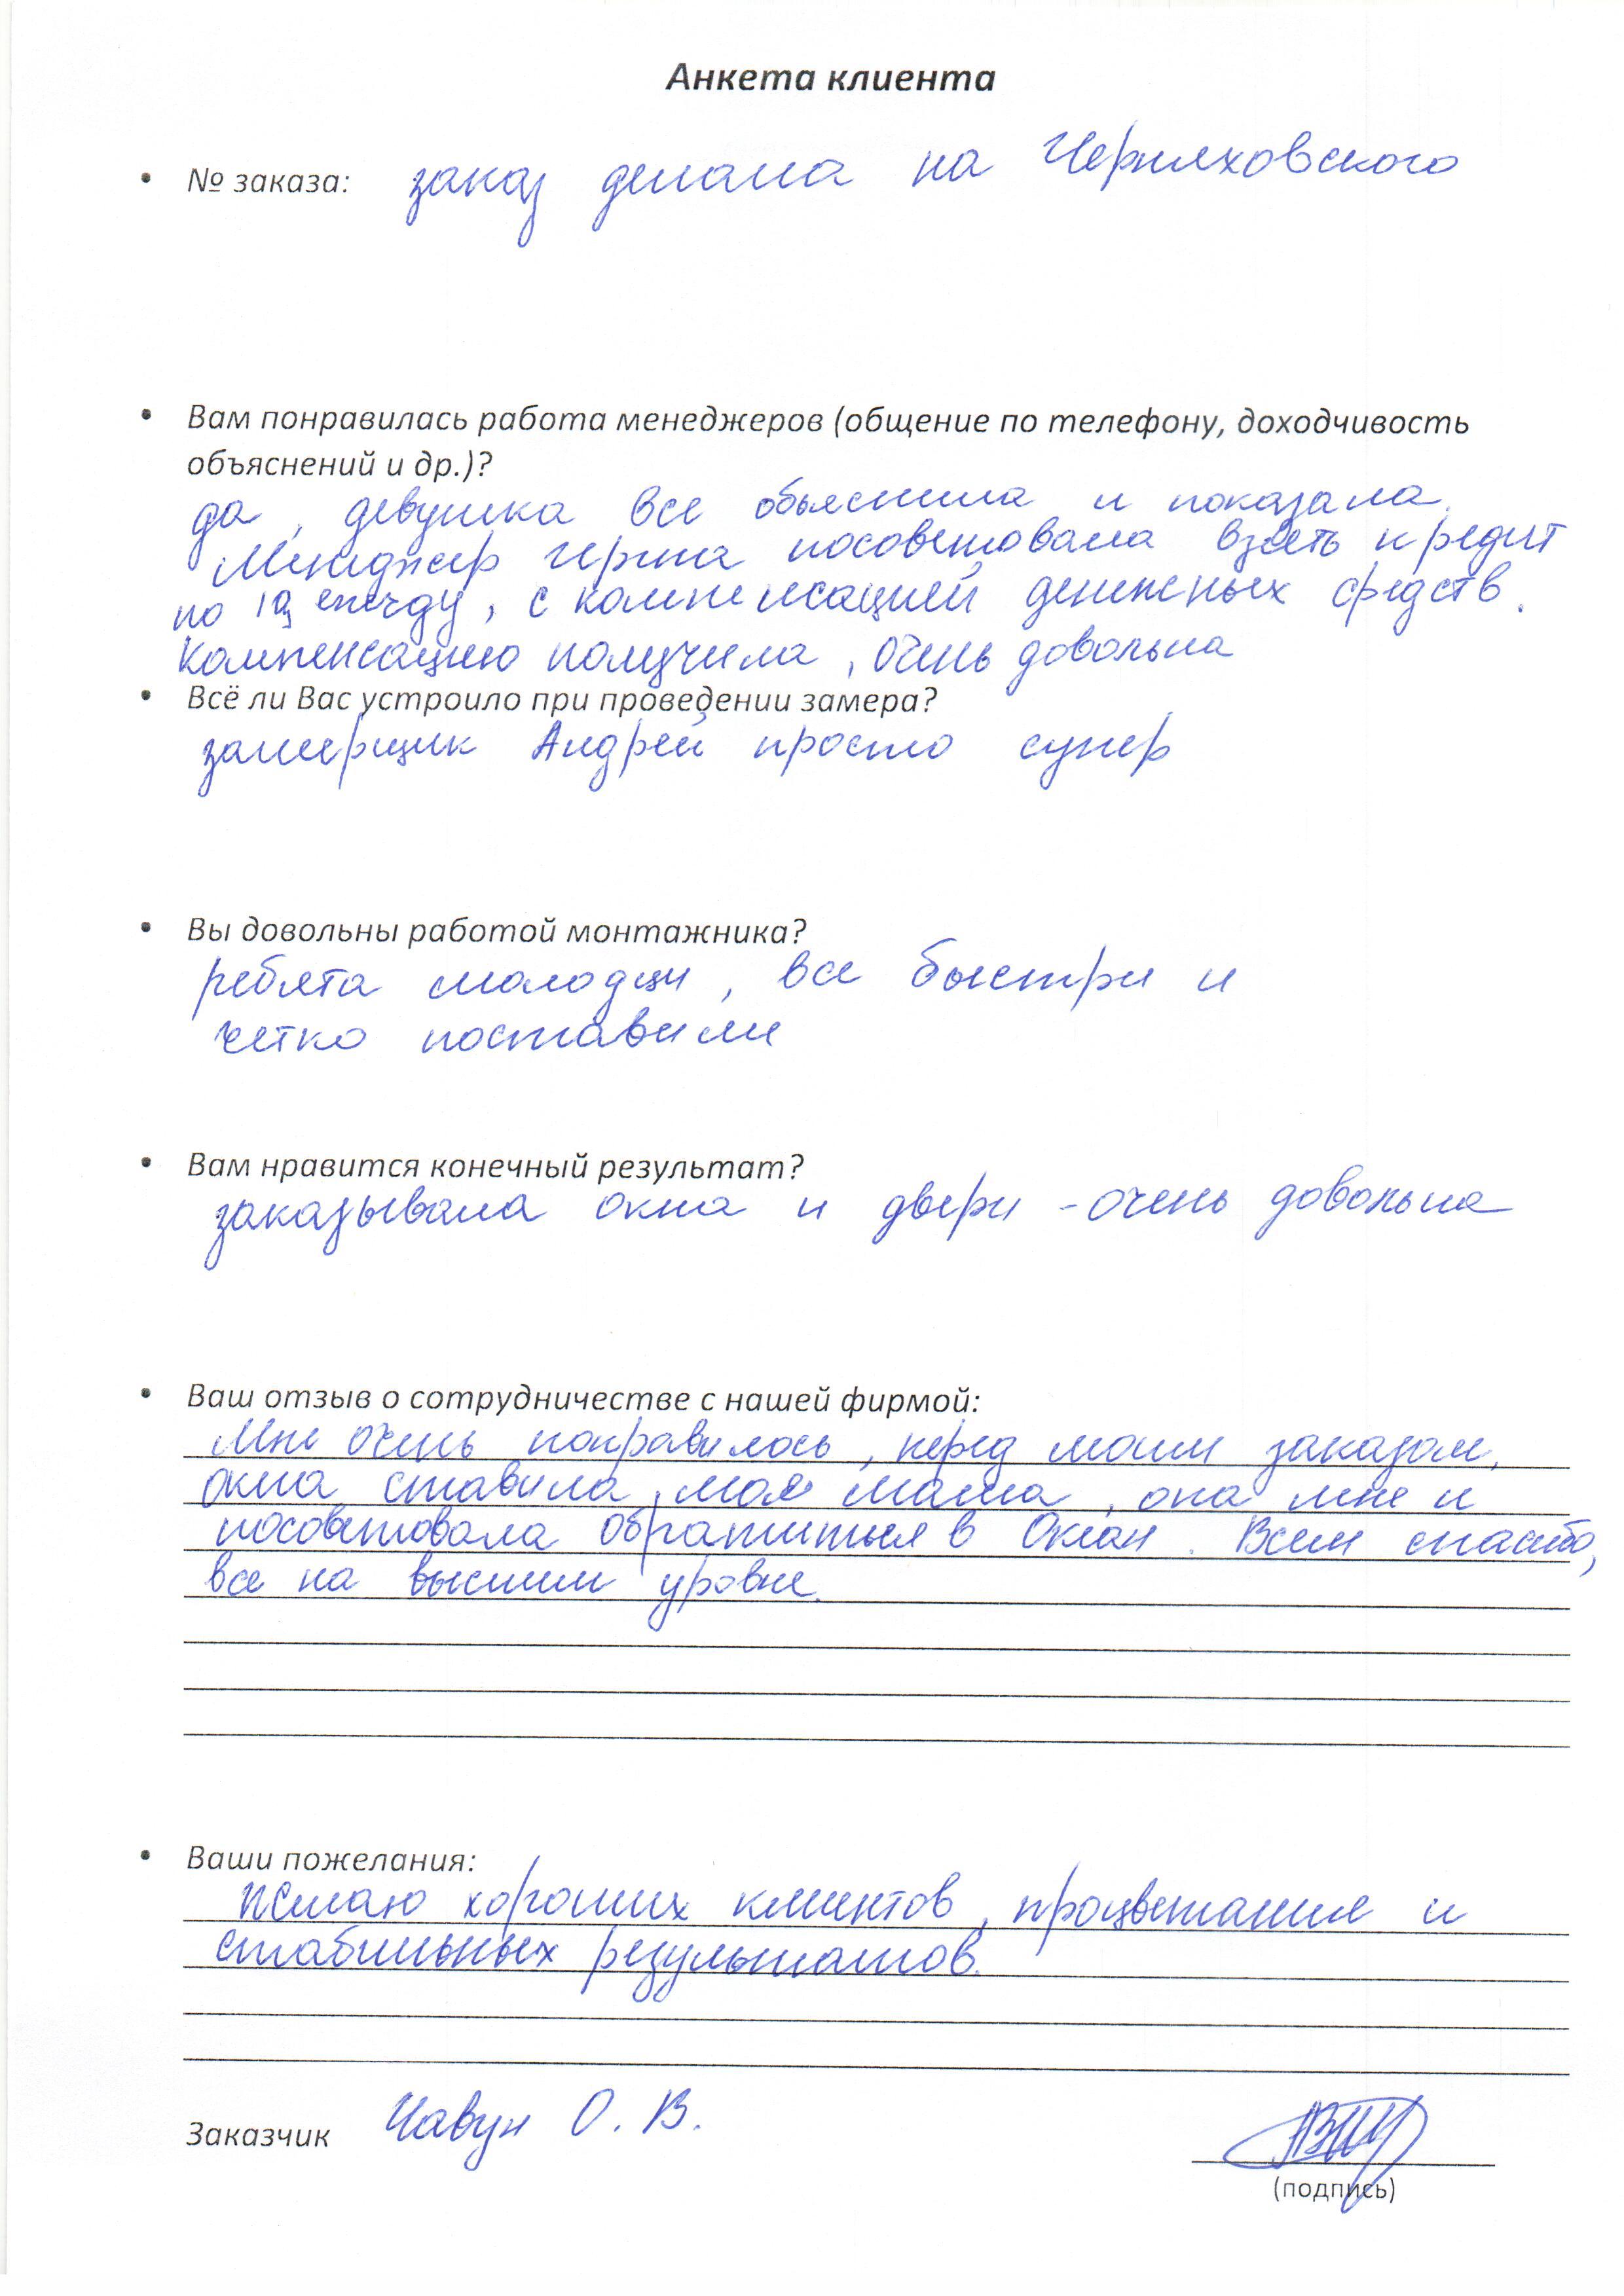 Анкета клиента
• № заказа: заказ делала на Черняховского
• Вам понравилась работа менеджеров (общение по телефону, доходчивость
объяснений и др.)?
да, девушка все объяснила и показала.
Менеджер посоветовала взять кредит
по iq energy, с компенсацией денежных средств.
Компенсацию получила, очень довольна
• Всё ли Вас устроило при проведении замера?
замерщик Андрей просто супер
• Вы довольны работой монтажника?
ребята молодцы, все быстри и
четко поставили
• Вам нравится конечный результат?
заказывала окна и двери - очень довольна
• Ваш отзыв о сотрудничестве с нашей фирмой:
Мне очень понравилось, перед моим заказом,
окна ставила моя мама, она мне и
посоветовала обратиться в Океан. Всем спасибо,
все на высшем уровне.
• Ваши пожелания:
Желаю хороших клиентов, процветания и
стабильных результатов.
Заказчик Чавун О. В.
(подпись)